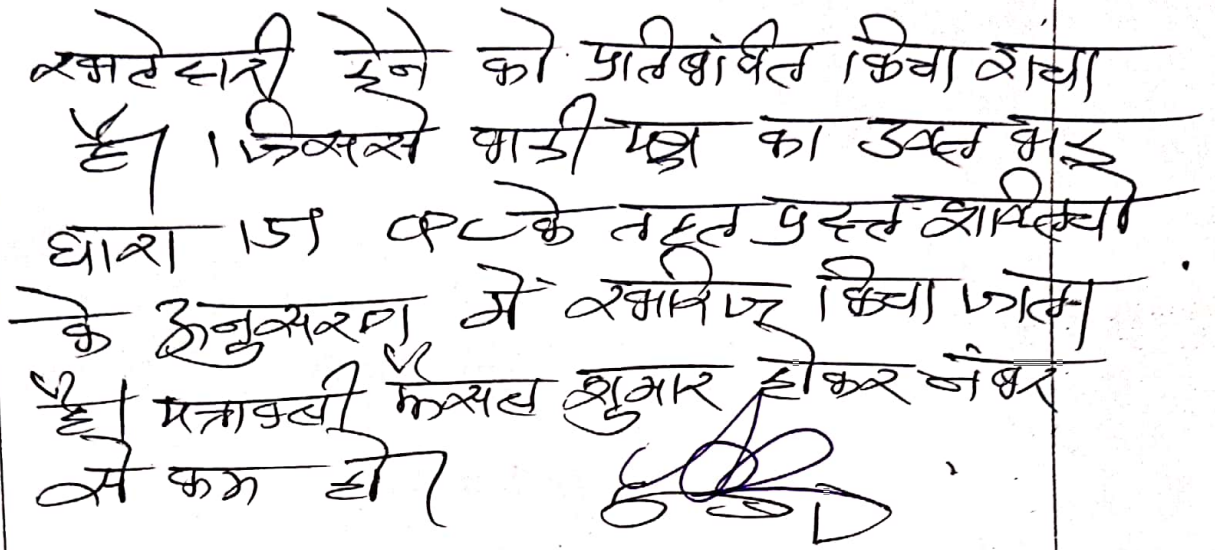 खातेदारी देने को प्रतिबंधित किया गया
है। जिससे वादी पक्ष का उक्त वाद
धारा 151 CPC के तहत प्रदत्त शक्तियों
के अनुसरण में खारिज किया जाता
है। पत्रावली फैसल शुमार होकर नंबर
से कम हो।